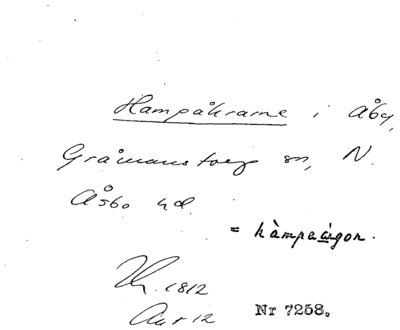 Hampåkrarne i Åby,
Gråmanstorp sn, N.
Åsbo hd.
= hàmpaågon.
1812
Akt 12 Nr 7258.